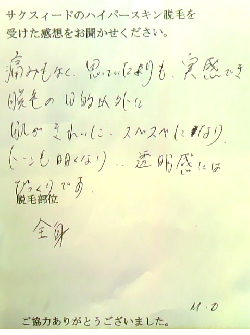 サクスィードのハイパースキン脱毛を
受けた感想をお聞かせください。
痛みもなく、思っていたよりも、実感でき
脱毛の目的以外に
肌がきれいに、スベスベになり、
トーンも明るくなり、、透明感には
びっくりです。
脱毛部位
全身
M.O
ご協力ありがとうございました。